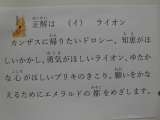 正解は （イ） ライオン
カンザスに帰りたいドロシー、知恵がほ
しいかかし、勇気がほしいライオン、ゆたか
な心がほしいブリキのきこり。願いをかな
えるためにエメラルドの都をめざします。